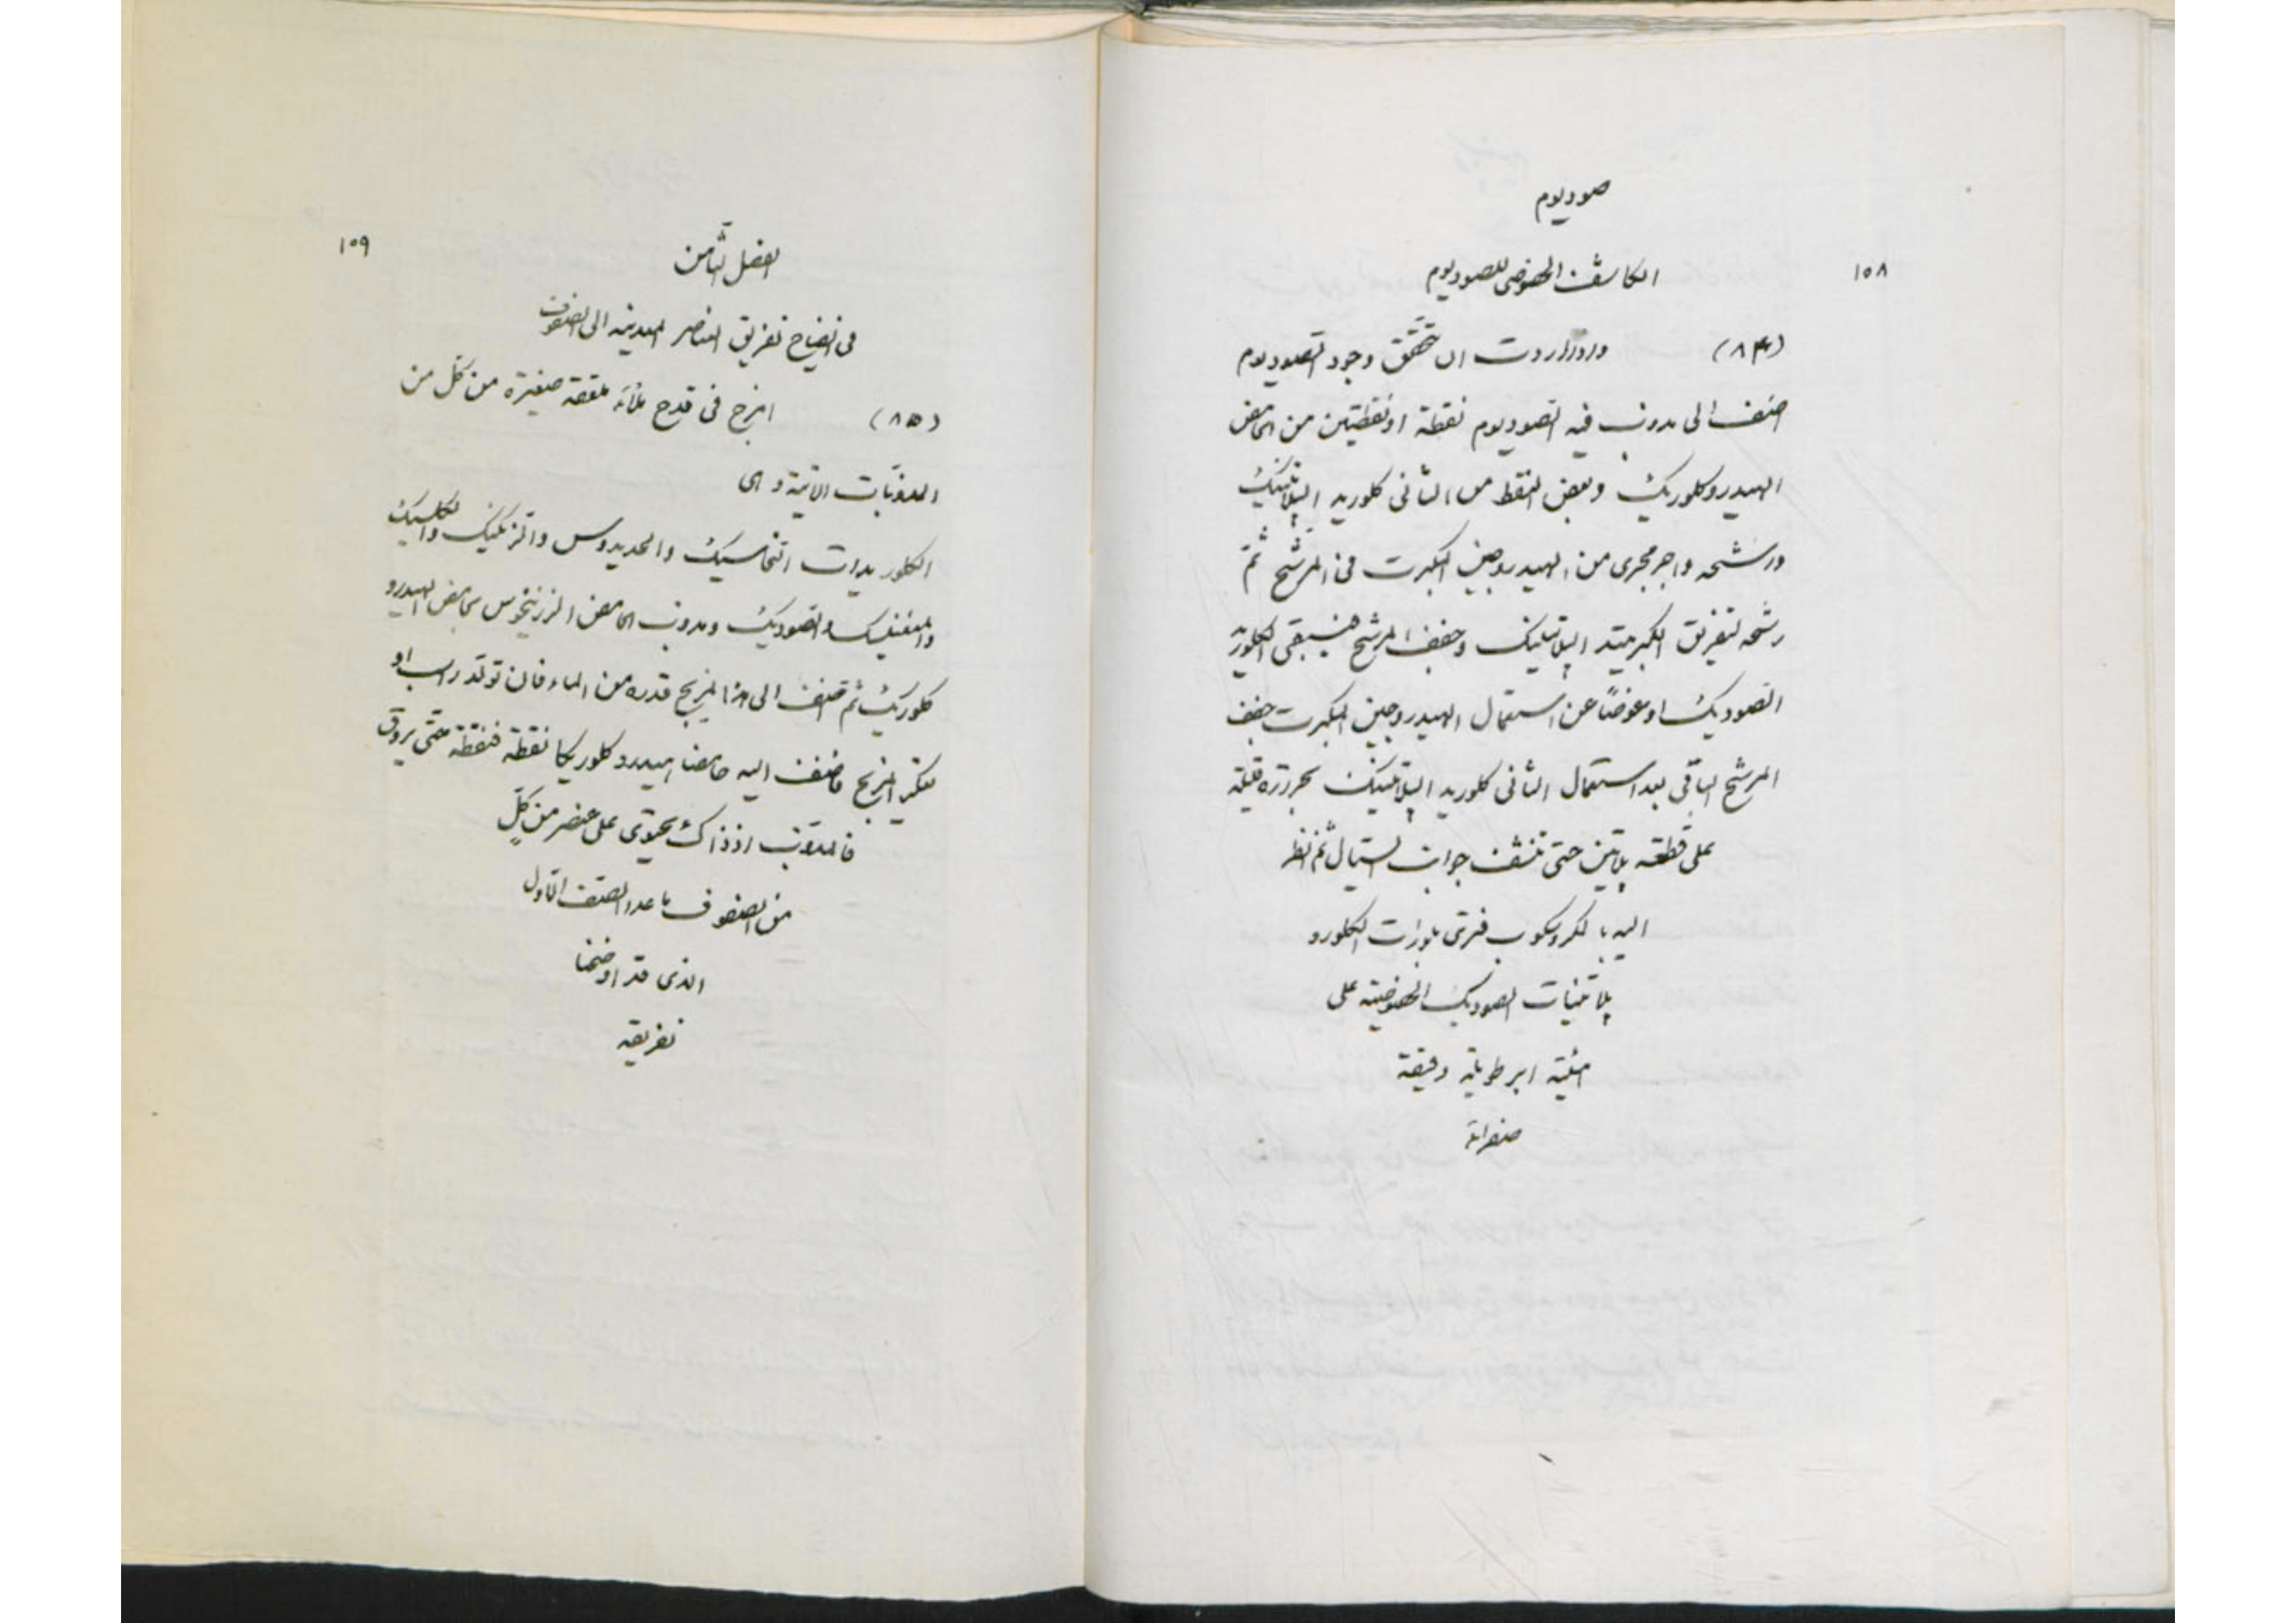 صوديوم
١٥٨
الكاشف الخصوصى للصوديوم
(٨٤) واذا اردت ان تتحقق وجود الصوديوم
اضف الى مدوب فيه الصوديوم نقطة او نقطتين من الحامض
الهيدروكلوريك وبعض النقط من الثانى كلوريد الپلاتينيك
ورشحه واجر مجرى من الهيدروجين المكبرت فى المرشح ثمّ
رشحه لتفريق الكبريتيد الپلاتينيك وجفف المرشح فيبقى الكلوريد
الصوديك او عوضًا عن استعمال الهيدروجين المكبرت جفف
المرشح الباقى بعد استعمال الثانى كلوريد الپلاتينيك بحرارة قليلة
على قطعة پلاتين حتى تنشف جوانب السيال ثم انظر
اليه بالمكروسكوب فترى بلورات الكلورو
پلاتينات الصوديك الخصوصية على
هيئة ابر طويلة دقيقة
صفراء
١٥٩
الفصل الثامن
فى ايضاح تفريق العناصر المعدنيه الى الصفوف
(٨٥) امزج فى قدح ملأة ملعقة صغيرة من كلّ من
المدوبات الاتية و هى
الكلوريدات النحاسيك والحديدوس والزنكيك والكلسيك
والمغنيسيك والصوديك ومدوب الحامض الزرنيخوس بحامض الهيدرو
كلوريك ثم اضف الى هذا المزيج قدره من الماء فان تولّد راسب او
تعكير المزيج فاضف اليه حامضا هيدروكلوريكا نقطة فنقطة حتى يروق
فالمدوب اذ ذاك يحتوى على عنصر من كلّ
من الصفوف ما عدا الصف الاول
الذى قد اوضحنا
تفريقه